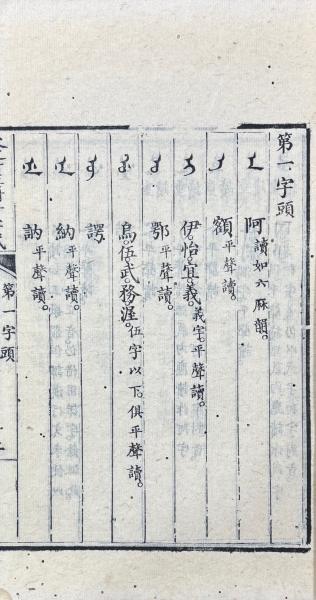 第一字頭
ᠠ 阿讀如六麻韻。
ᡝ 額平聲讀。
ᡳ 伊怡宜義義字平聲讀。
ᠣ 鄂平聲讀。
ᡠ 烏伍武務渥伍字以下俱平聲讀。
ᡡ 諤
ᠨᠠ 納平聲讀。
ᠨᡝ 訥平聲讀。
第一字頭